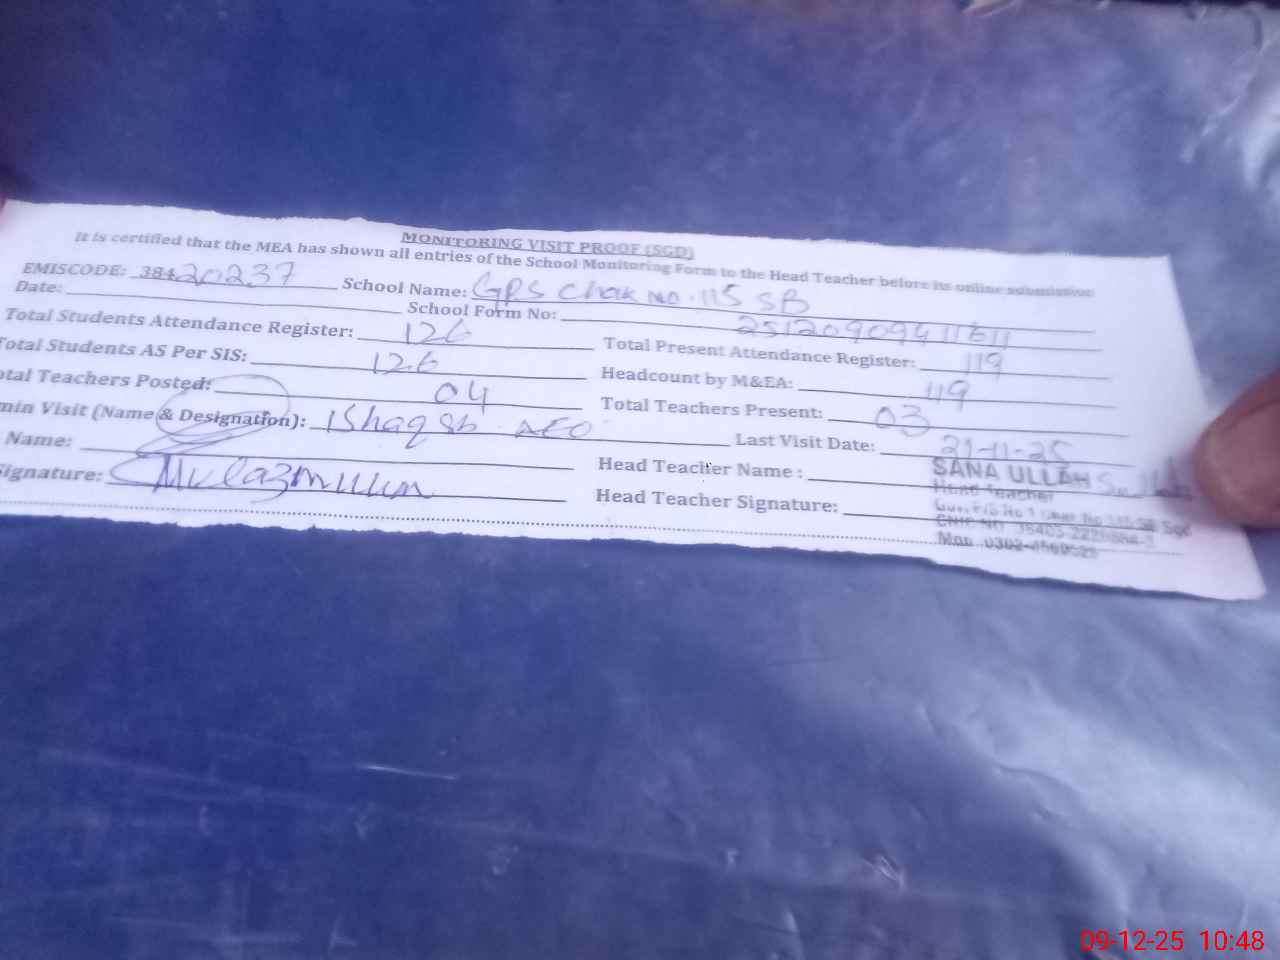 MONITORING VISIT PROOF (SGD)
It is certified that the MEA has shown all entries of the School Monitoring Form to the Head Teacher before its online submission
EMISCODE: 38420237 School Name: GPS Chak No. 115 SB
Date: School Form No: 2512090941611
Total Students Attendance Register: 126 Total Present Attendance Register: 119
otal Students AS Per SIS: 126 Headcount by M&EA: 119
otal Teachers Posted: 04 Total Teachers Present: 03
min Visit (Name & Designation): Ishaq sb AEO Last Visit Date: 21-11-25
Name: Head Teacher Name : SANA ULLAH
ignature: Head Teacher Signature: Head Teacher
Mob 0302-
09-12-25 10:48